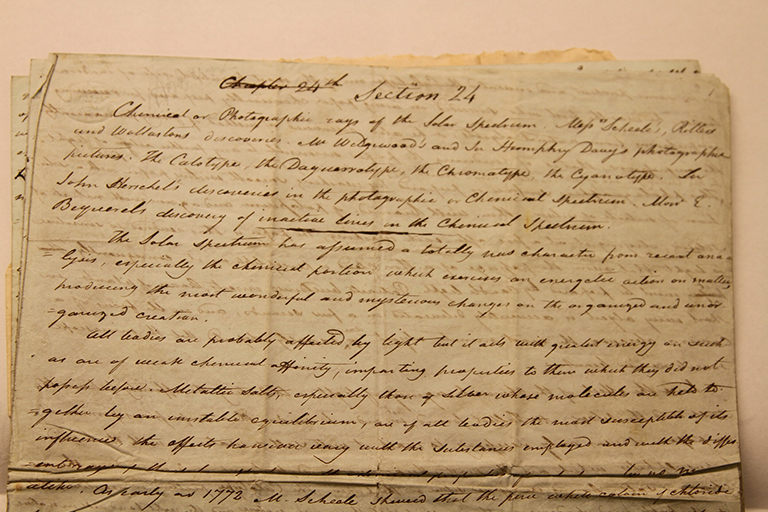 Chapter 24th Section 24
Chemical or Photographic rays of the Solar Spectrum. Messrs Scheele's, Ritters
and Wollastons discoveries. Mr Wedgwood's and Sir Humphry Davy's photographic
pictures. The Calotype, the Daguerrotype, the Chromatype, the Cyanotype. Sir
John Herschel's discoveries in the photographic or Chemical Spectrum. Monr E.
Bequerels discovery of inactive lines in the Chemical Spectrum.
The Solar Spectrum has assumed a totally new character from recent ana
=lysis, especially the chemical portion which exercises an energetic action on matter
producing the most wonderful and mysterious changes on the organized and unor
=ganized creation.
All bodies are probably affected by light but it acts with greatest energy on such
as are of weak chemical affinity, imparting properties to them which they did not
possess before. Metallic salts, especially those of silver whose molecules are held to
=gether by an unstable equilibrium, are of all bodies the most susceptible of its
influence, the effects however vary with the substances employed and with the differ
alike. As early as 1772 M. Scheele shewed that the pure white colour of chloride